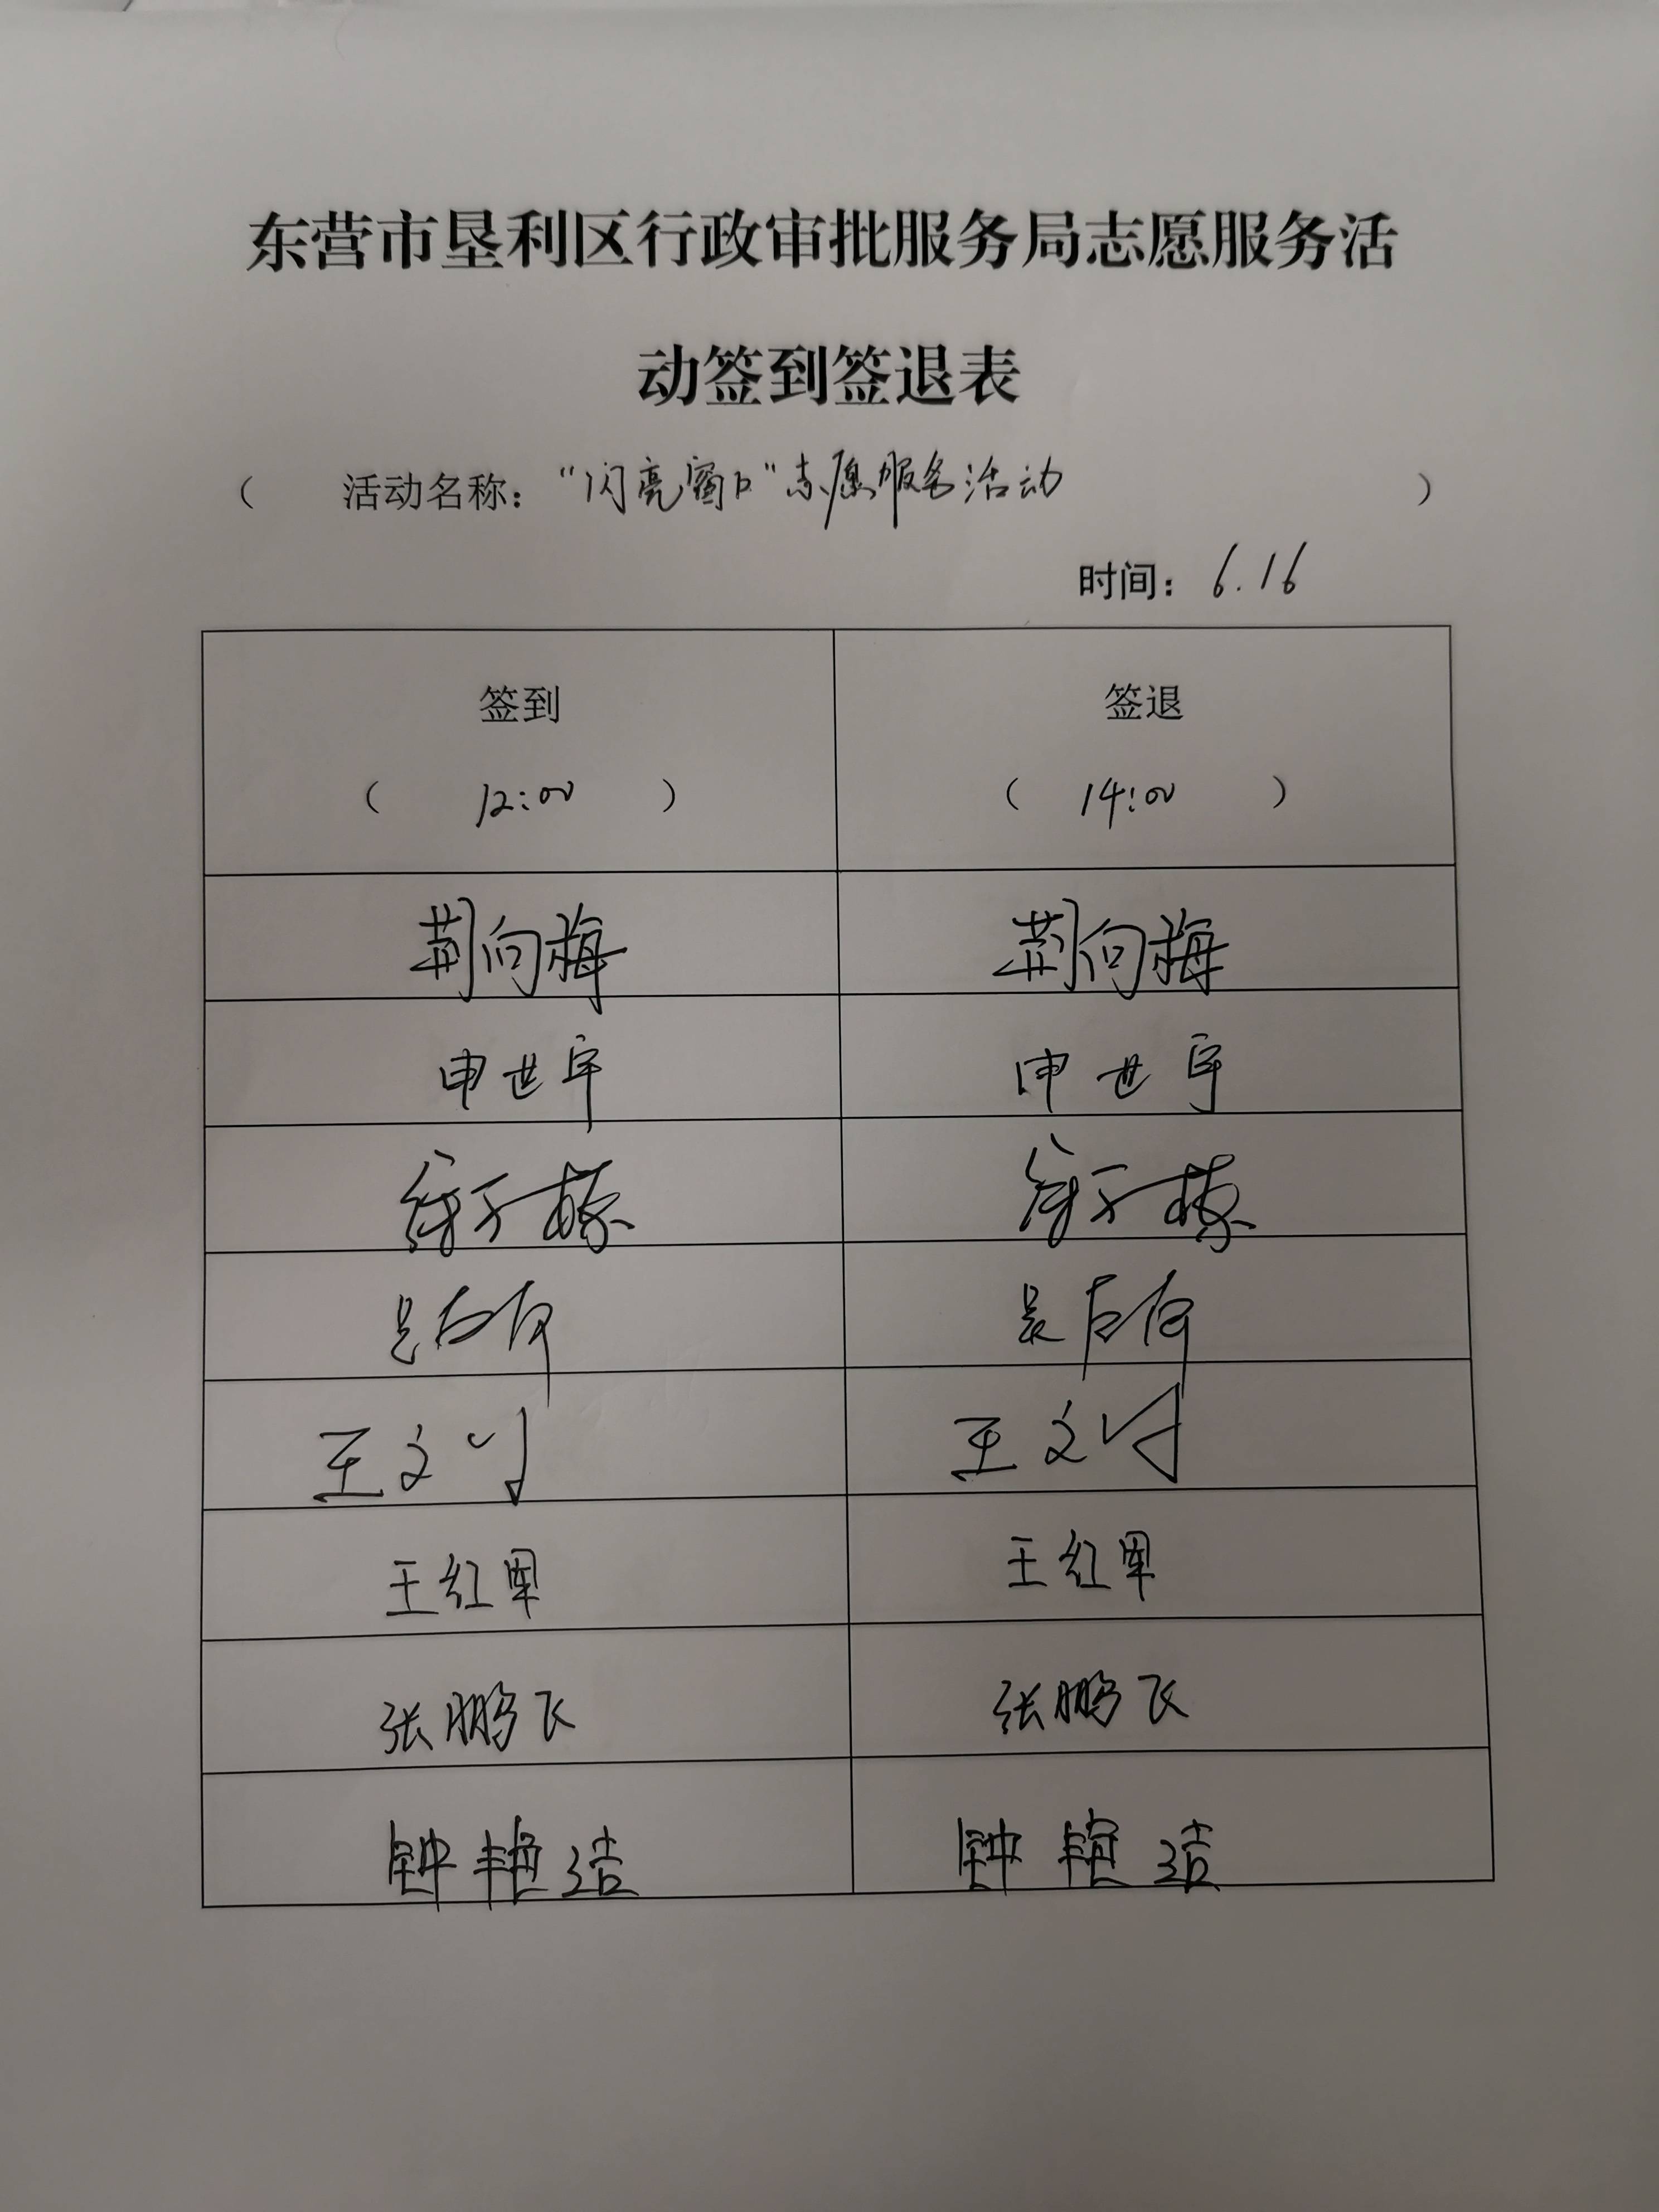 东营市垦利区行政审批服务局志愿服务活
动签到签退表
（ 活动名称：“闪亮窗口”志愿服务活动 ）
时间：6.16
签到 签退
（ 12:00 ） （ 14:00 ）
荆向梅 荆向梅
申世宇 申世宇
王文 王文
王红军 王红军
张鹏飞 张鹏飞
钟艳洁 钟艳洁